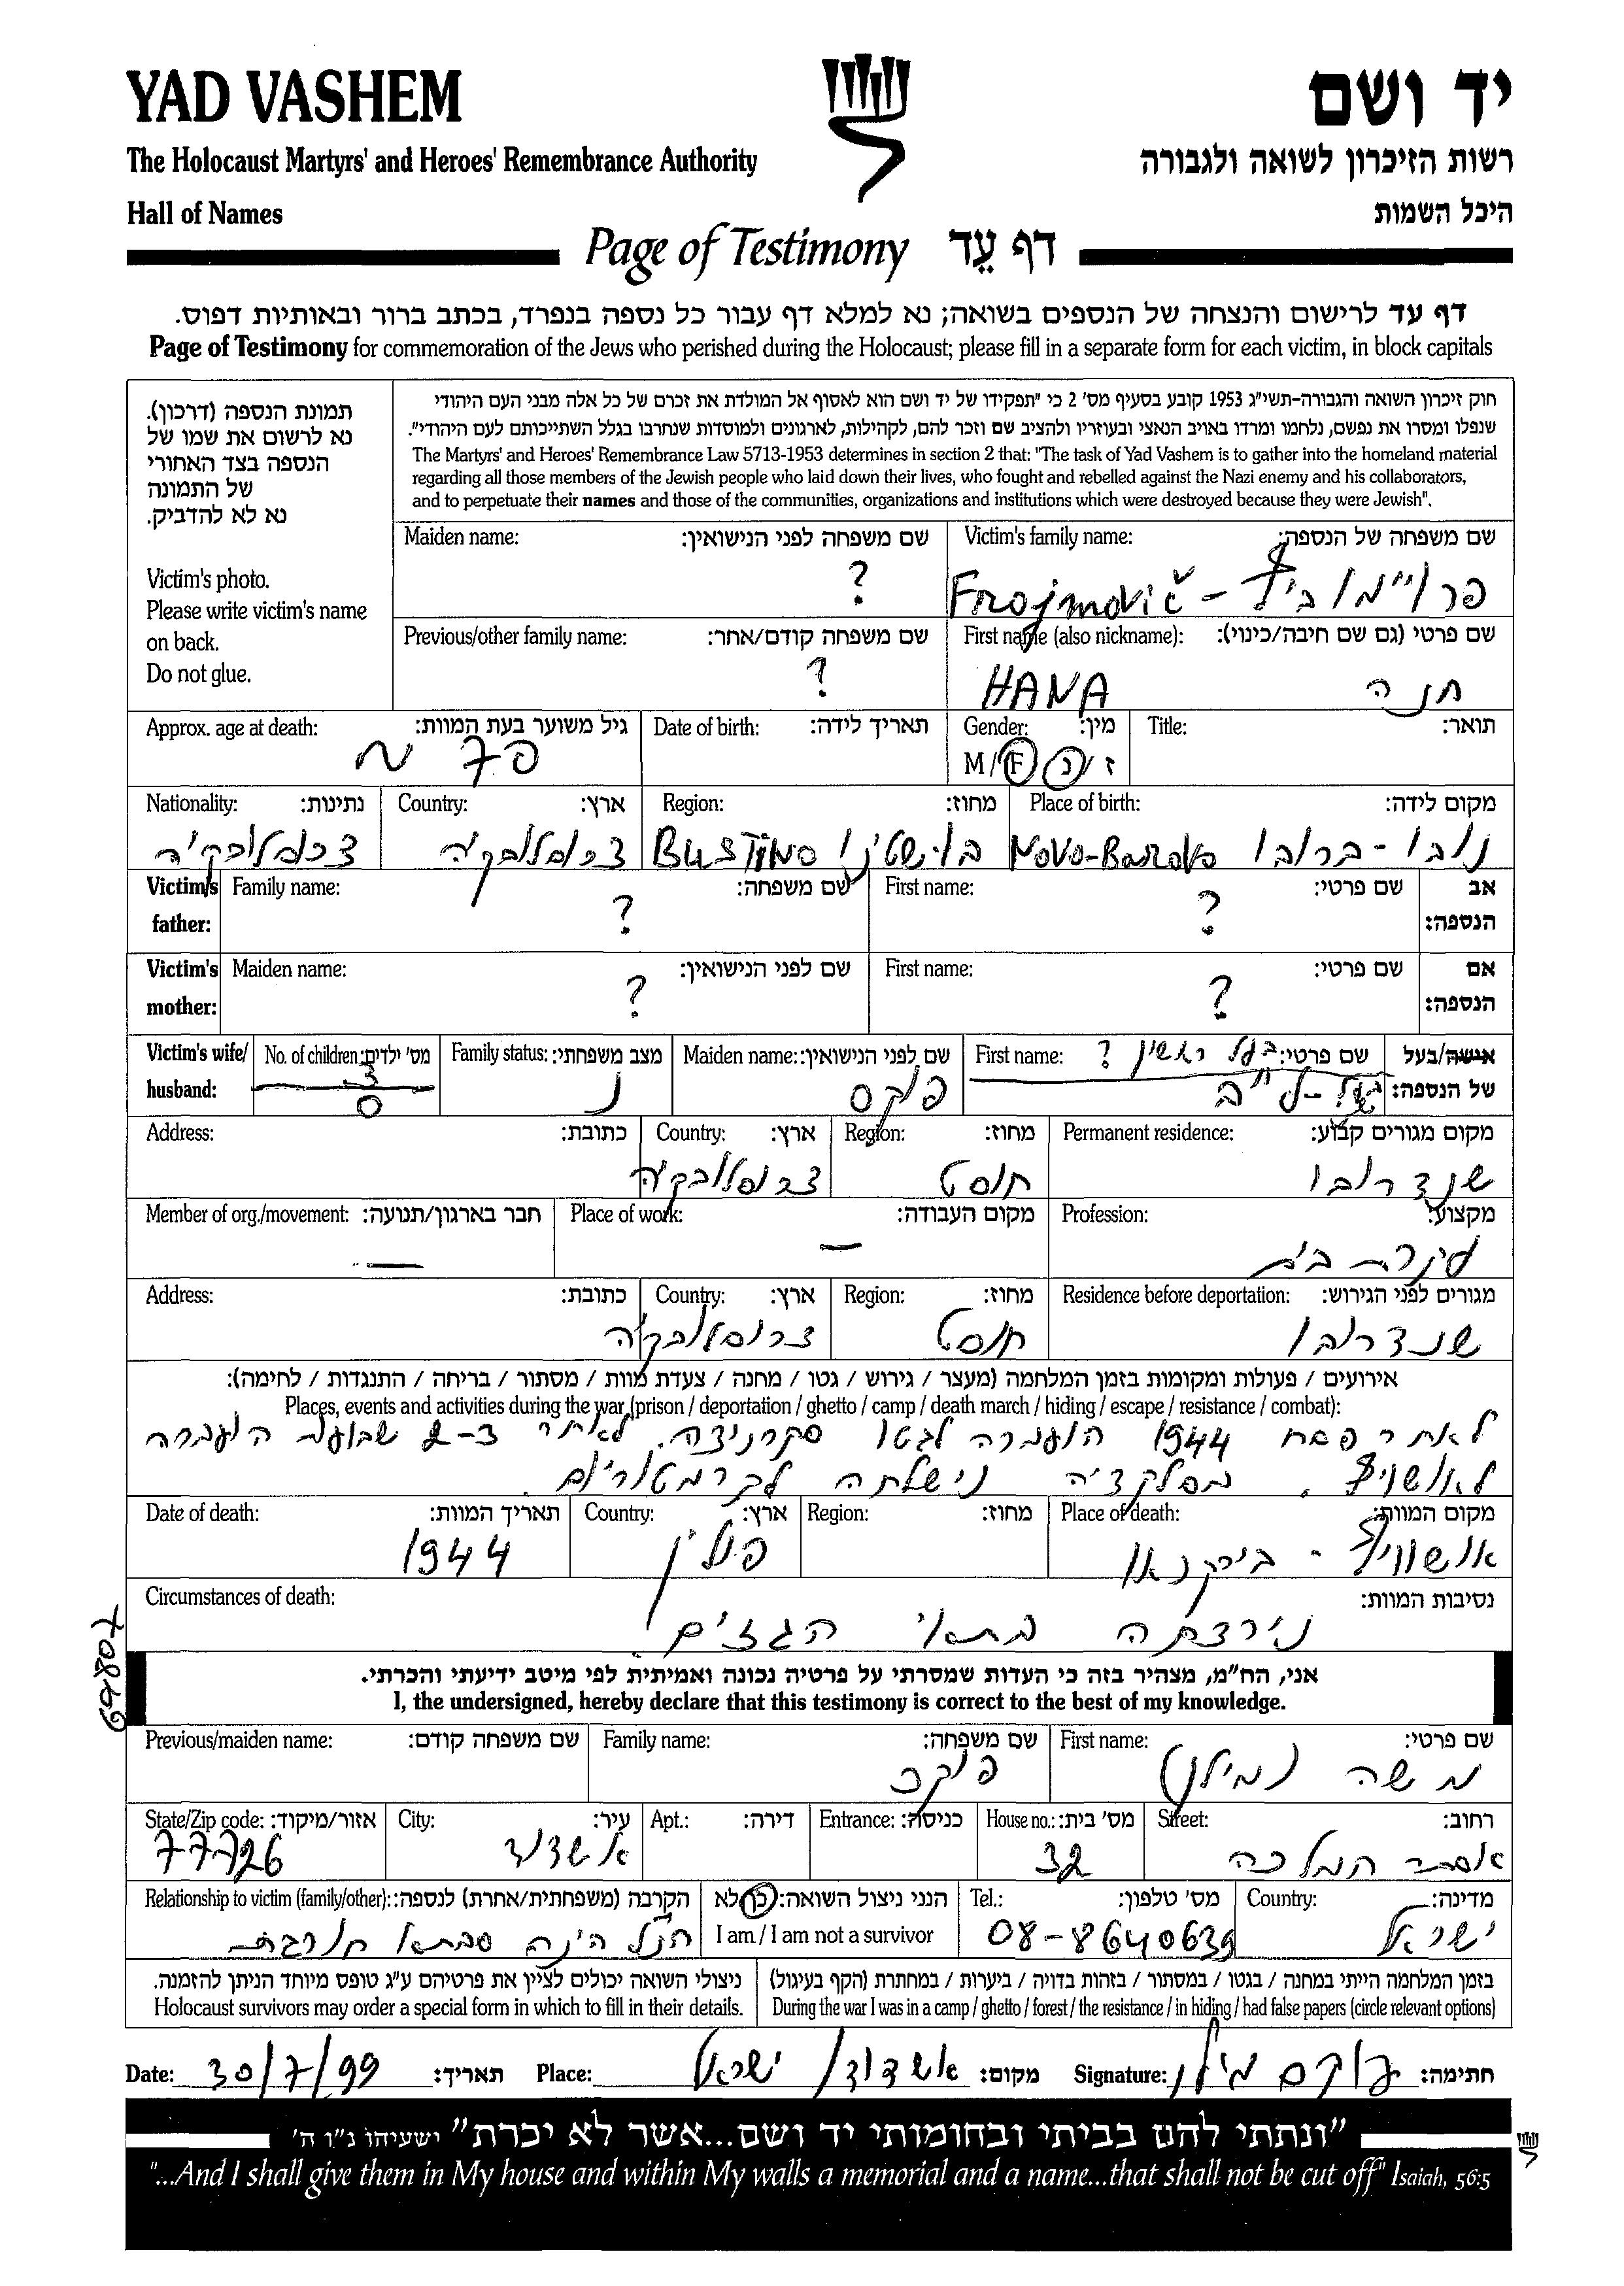 YAD VASHEM
יד ושם
The Holocaust Martyrs' and Heroes' Remembrance Authority
רשות הזיכרון לשואה ולגבורה
Hall of Names
היכל השמות
Page of Testimony דף עֵד
דף עד לרישום והנצחה של הנספים בשואה; נא למלא דף עבור כל נספה בנפרד, בכתב ברור ובאותיות דפוס.
Page of Testimony for commemoration of the Jews who perished during the Holocaust; please fill in a separate form for each victim, in block capitals
תמונת הנספה (דרכון).
נא לרשום את שמו של
הנספה בצד האחורי
של התמונה
נא לא להדביק.
Victim's photo.
Please write victim's name
on back.
Do not glue.
חוק זיכרון השואה והגבורה-תשי"ג 1953 קובע בסעיף מס' 2 כי "תפקידו של יד ושם הוא לאסוף אל המולדת את זכרם של כל אלה מבני העם היהודי
שנפלו ומסרו את נפשם, נלחמו ומרדו באויב הנאצי ובעוזריו ולהציב שם וזכר להם, לקהילות, לארגונים ולמוסדות שנחרבו בגלל השתייכותם לעם היהודי".
The Martyrs' and Heroes' Remembrance Law 5713-1953 determines in section 2 that: "The task of Yad Vashem is to gather into the homeland material
regarding all those members of the Jewish people who laid down their lives, who fought and rebelled against the Nazi enemy and his collaborators,
and to perpetuate their names and those of the communities, organizations and institutions which were destroyed because they were Jewish".
Victim's family name: שם משפחה של הנספה:
Frojmovič - פרויימוביץ
Maiden name: שם משפחה לפני הנישואין:
?
First name (also nickname): שם פרטי (גם שם חיבה/כינוי):
HANA חנה
Previous/other family name: שם משפחה קודם/אחר:
?
Title: תואר:
Gender: מין:
M / F ז / נ
Date of birth: תאריך לידה:
Approx. age at death: גיל משוער בעת המוות:
Place of birth: מקום לידה:
Novo-Barovo נובו-ברובו
Region: מחוז:
BUSTINO בושטינו
Country: ארץ:
צכוסלובקיה
Nationality: נתינות:
צכוסלובקיה
Victim's father: אב הנספה:
First name: שם פרטי:
?
Family name: שם משפחה:
?
Victim's mother: אם הנספה:
First name: שם פרטי:
?
Maiden name: שם לפני הנישואין:
?
Victim's wife/husband: אישה/בעל של הנספה:
First name: שם פרטי: בעל ראשון ?
Maiden name: שם לפני הנישואין:
פוקס
Family status: מצב משפחתי:
נ
No. of children: מס' ילדים:
3
0
Permanent residence: מקום מגורים קבוע:
שנדרובו
Region: מחוז:
חוסט
Country: ארץ:
צכוסלובקיה
Address: כתובת:
Profession: מקצוע:
עקרת בית
Place of work: מקום העבודה:
—
Member of org./movement: חבר בארגון/תנועה:
—
Residence before deportation: מגורים לפני הגירוש:
שנדרובו
Region: מחוז:
חוסט
Country: ארץ:
צכוסלובקיה
Address: כתובת:
אירועים / פעולות ומקומות בזמן המלחמה (מעצר / גירוש / גטו / מחנה / צעדת מוות / מסתור / בריחה / התנגדות / לחימה):
Places, events and activities during the war (prison / deportation / ghetto / camp / death march / hiding / escape / resistance / combat):
לאחר פסח 1944 הועברה לגטו סקרניצה. לאחר 2-3 שבועות הועברה
לאושויץ. בסלקציה נישלחה לקרמטוריום.
Place of death: מקום המוות:
אושוויץ - בירקנאו
Region: מחוז:
Country: ארץ:
פולין
Date of death: תאריך המוות:
1944
Circumstances of death: נסיבות המוות:
נירצחה בתאי הגזים
69807
אני, הח"מ, מצהיר בזה כי העדות שמסרתי על פרטיה נכונה ואמיתית לפי מיטב ידיעתי והכרתי.
I, the undersigned, hereby declare that this testimony is correct to the best of my knowledge.
First name: שם פרטי:
משה (מילן)
Family name: שם משפחה:
פוקס
Previous/maiden name: שם משפחה קודם:
Street: רחוב:
אסתר המלכה
House no.: מס' בית:
32
Entrance: כניסה:
Apt.: דירה:
City: עיר:
אשדוד
State/Zip code: אזור/מיקוד:
77726
Country: מדינה:
ישראל
Tel.: מס' טלפון:
08-8640639
הנני ניצול השואה: כן לא
I am / I am not a survivor
Relationship to victim (family/other): הקרבה (משפחתית/אחרת) לנספה:
הנ"ל הינה סבתא חורגת
בזמן המלחמה הייתי במחנה / בגטו / במסתור / בזהות בדויה / ביערות / במחתרת (הקף בעיגול)
During the war I was in a camp / ghetto / forest / the resistance / in hiding / had false papers (circle relevant options)
ניצולי השואה יכולים לציין את פרטיהם ע"ג טופס מיוחד הניתן להזמנה.
Holocaust survivors may order a special form in which to fill in their details.
Date: 30/7/99 תאריך: Place: אשדוד / ישראל מקום: Signature: פוקס מילן חתימה:
"ונתתי להם בביתי ובחומותי יד ושם...אשר לא יכרת" ישעיהו נ"ו ה'
"...And I shall give them in My house and within My walls a memorial and a name...that shall not be cut off" Isaiah, 56:5